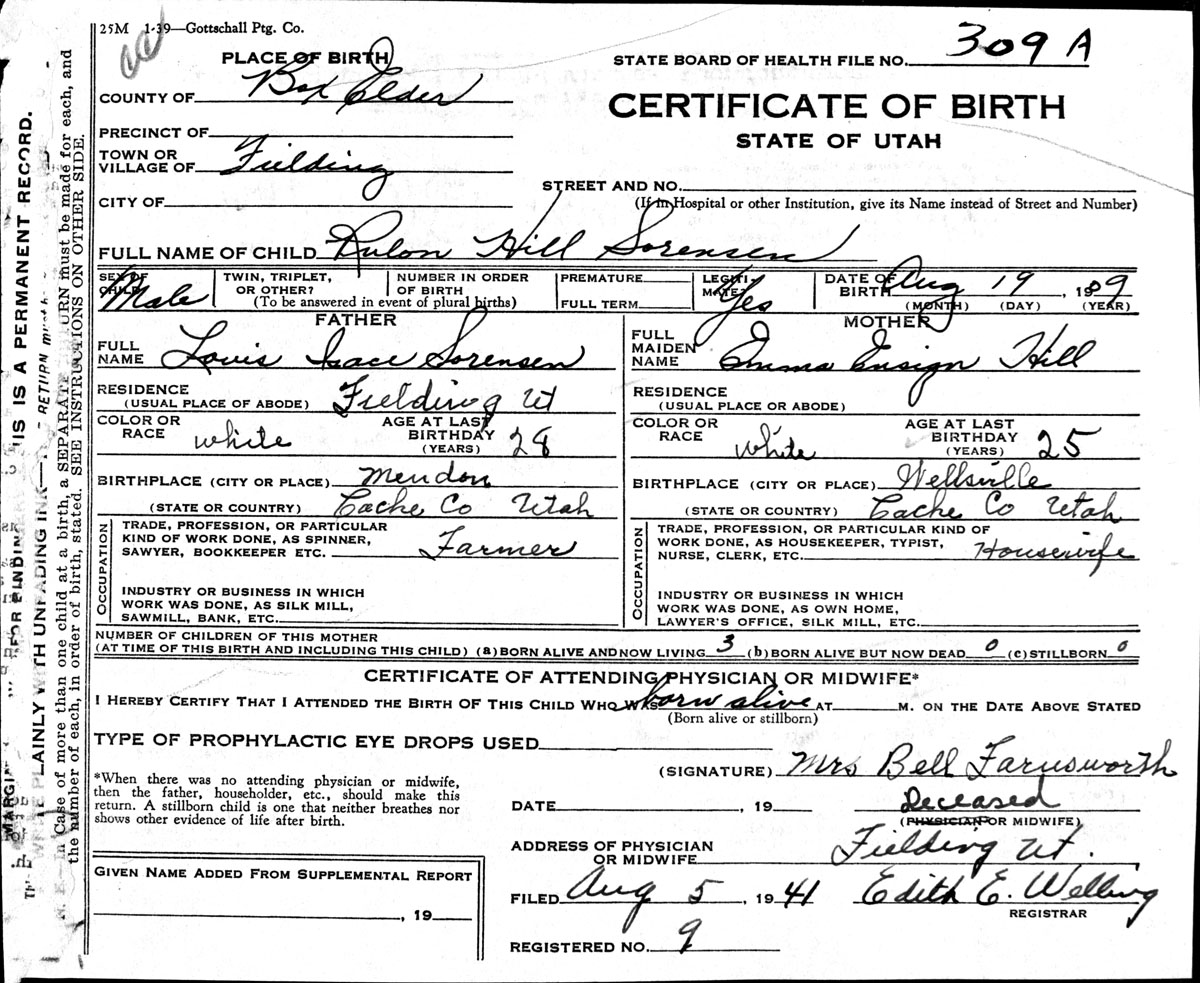 25M 1-39—Gottschall Ptg. Co.
STATE BOARD OF HEALTH FILE NO. 309 A
PLACE OF BIRTH
COUNTY OF Box Elder
CERTIFICATE OF BIRTH
STATE OF UTAH
PRECINCT OF
TOWN OR VILLAGE OF Fielding
CITY OF
STREET AND NO.
(If in Hospital or other Institution, give its Name instead of Street and Number)
FULL NAME OF CHILD Rulon Hill Sorensen
SEX OF CHILD Male
TWIN, TRIPLET, OR OTHER?
NUMBER IN ORDER OF BIRTH
(To be answered in event of plural births)
PREMATURE
FULL TERM
LEGITIMATE? Yes
DATE OF BIRTH Aug 19, 1909
(MONTH) (DAY) (YEAR)
FATHER
FULL NAME Louis Isace Sorensen
RESIDENCE (USUAL PLACE OF ABODE) Fielding Ut
COLOR OR RACE white
AGE AT LAST BIRTHDAY (YEARS) 28
BIRTHPLACE (CITY OR PLACE) Mendon
(STATE OR COUNTRY) Cache Co Utah
OCCUPATION
TRADE, PROFESSION, OR PARTICULAR
KIND OF WORK DONE, AS SPINNER,
SAWYER, BOOKKEEPER ETC. Farmer
INDUSTRY OR BUSINESS IN WHICH
WORK WAS DONE, AS SILK MILL,
SAWMILL, BANK, ETC.
MOTHER
FULL MAIDEN NAME Emma Ensign Hill
RESIDENCE (USUAL PLACE OR ABODE)
COLOR OR RACE white
AGE AT LAST BIRTHDAY (YEARS) 25
BIRTHPLACE (CITY OR PLACE) Wellsville
(STATE OR COUNTRY) Cache Co Utah
OCCUPATION
TRADE, PROFESSION, OR PARTICULAR KIND OF
WORK DONE, AS HOUSEKEEPER, TYPIST,
NURSE, CLERK, ETC. Housewife
INDUSTRY OR BUSINESS IN WHICH
WORK WAS DONE, AS OWN HOME,
LAWYER'S OFFICE, SILK MILL, ETC.
NUMBER OF CHILDREN OF THIS MOTHER
(AT TIME OF THIS BIRTH AND INCLUDING THIS CHILD) (a) BORN ALIVE AND NOW LIVING 3 (b) BORN ALIVE BUT NOW DEAD 0 (c) STILLBORN 0
CERTIFICATE OF ATTENDING PHYSICIAN OR MIDWIFE*
I HEREBY CERTIFY THAT I ATTENDED THE BIRTH OF THIS CHILD WHO WAS born alive AT M. ON THE DATE ABOVE STATED
(Born alive or stillborn)
TYPE OF PROPHYLACTIC EYE DROPS USED
*When there was no attending physician or midwife,
then the father, householder, etc., should make this
return. A stillborn child is one that neither breathes nor
shows other evidence of life after birth.
(SIGNATURE) Mrs Bell Farnsworth
DATE , 19 Deceased
(PHYSICIAN OR MIDWIFE)
ADDRESS OF PHYSICIAN OR MIDWIFE Fielding Ut.
GIVEN NAME ADDED FROM SUPPLEMENTAL REPORT
, 19
FILED Aug 5, 1941 Edith E. Welling
REGISTRAR
REGISTERED NO. 9
IS A PERMANENT RECORD.
PLAINLY WITH UNFADING INK—
In Case of more than one child at a birth, a SEPARATE RETURN must be made for each, and
the number of each, in order of birth, stated. SEE INSTRUCTIONS ON OTHER SIDE.